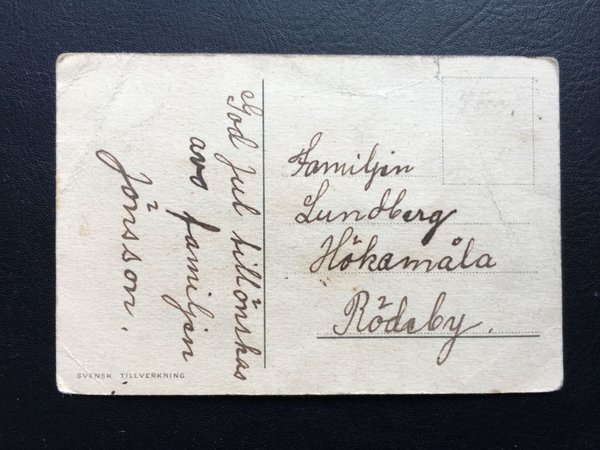 God jul tillönskas
avs familjen
Jönsson.
Familjen
Lundberg
Hökamåla
Rödeby.
SVENSK TILLVERKNING